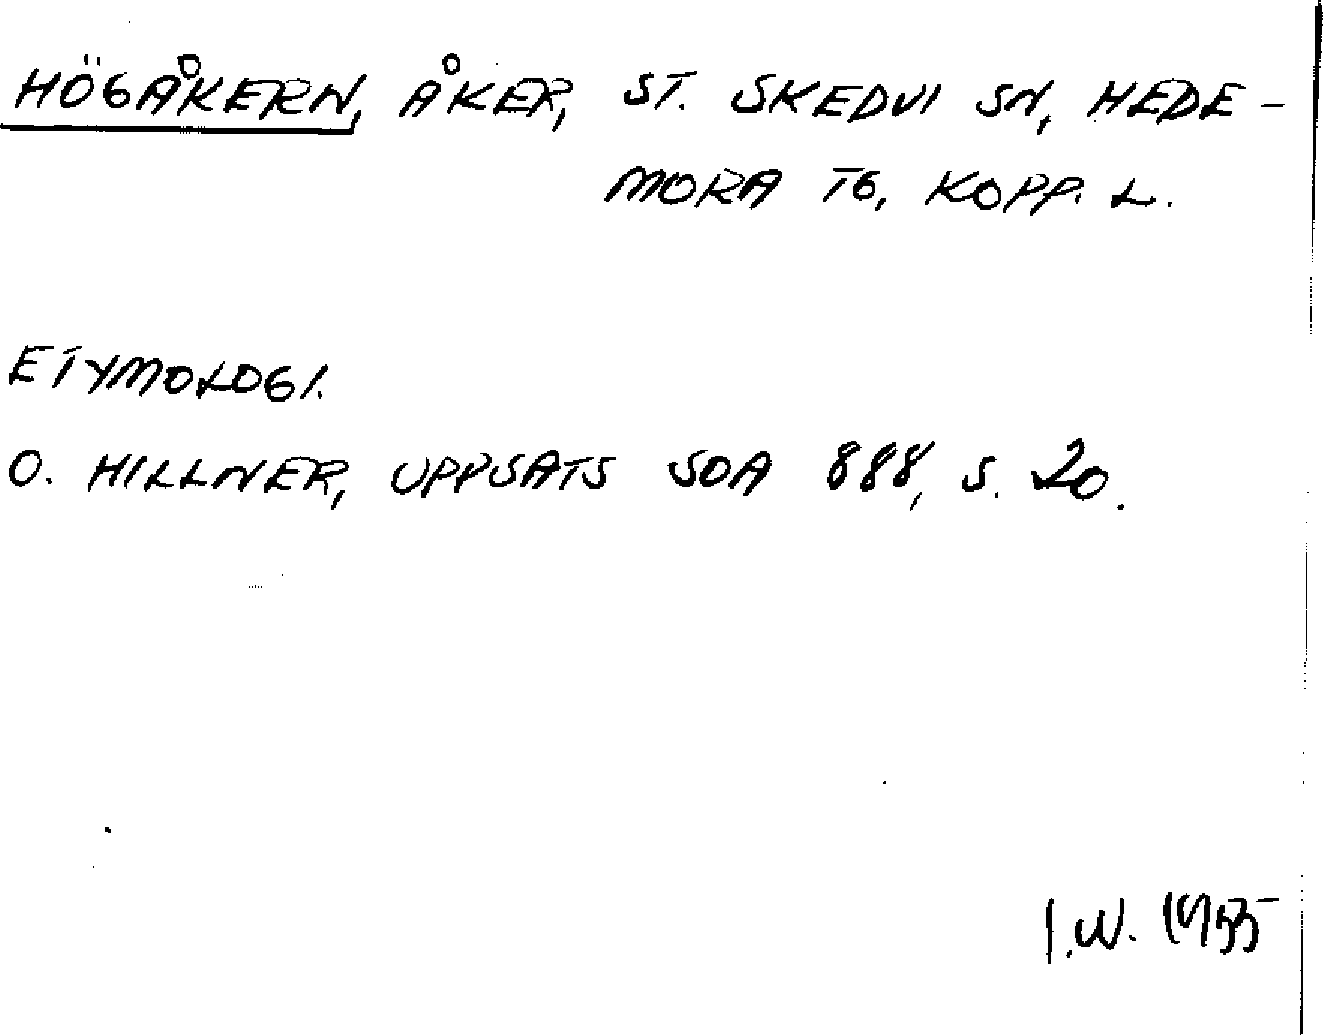 HÖGÅKERN, ÅKER, ST. SKEDVI SN, HEDE-
MORA TG, KOPP. L.
ETYMOLOGI.
O. HILLNER, UPPSATS SOA 888, S. 20.
I.W.